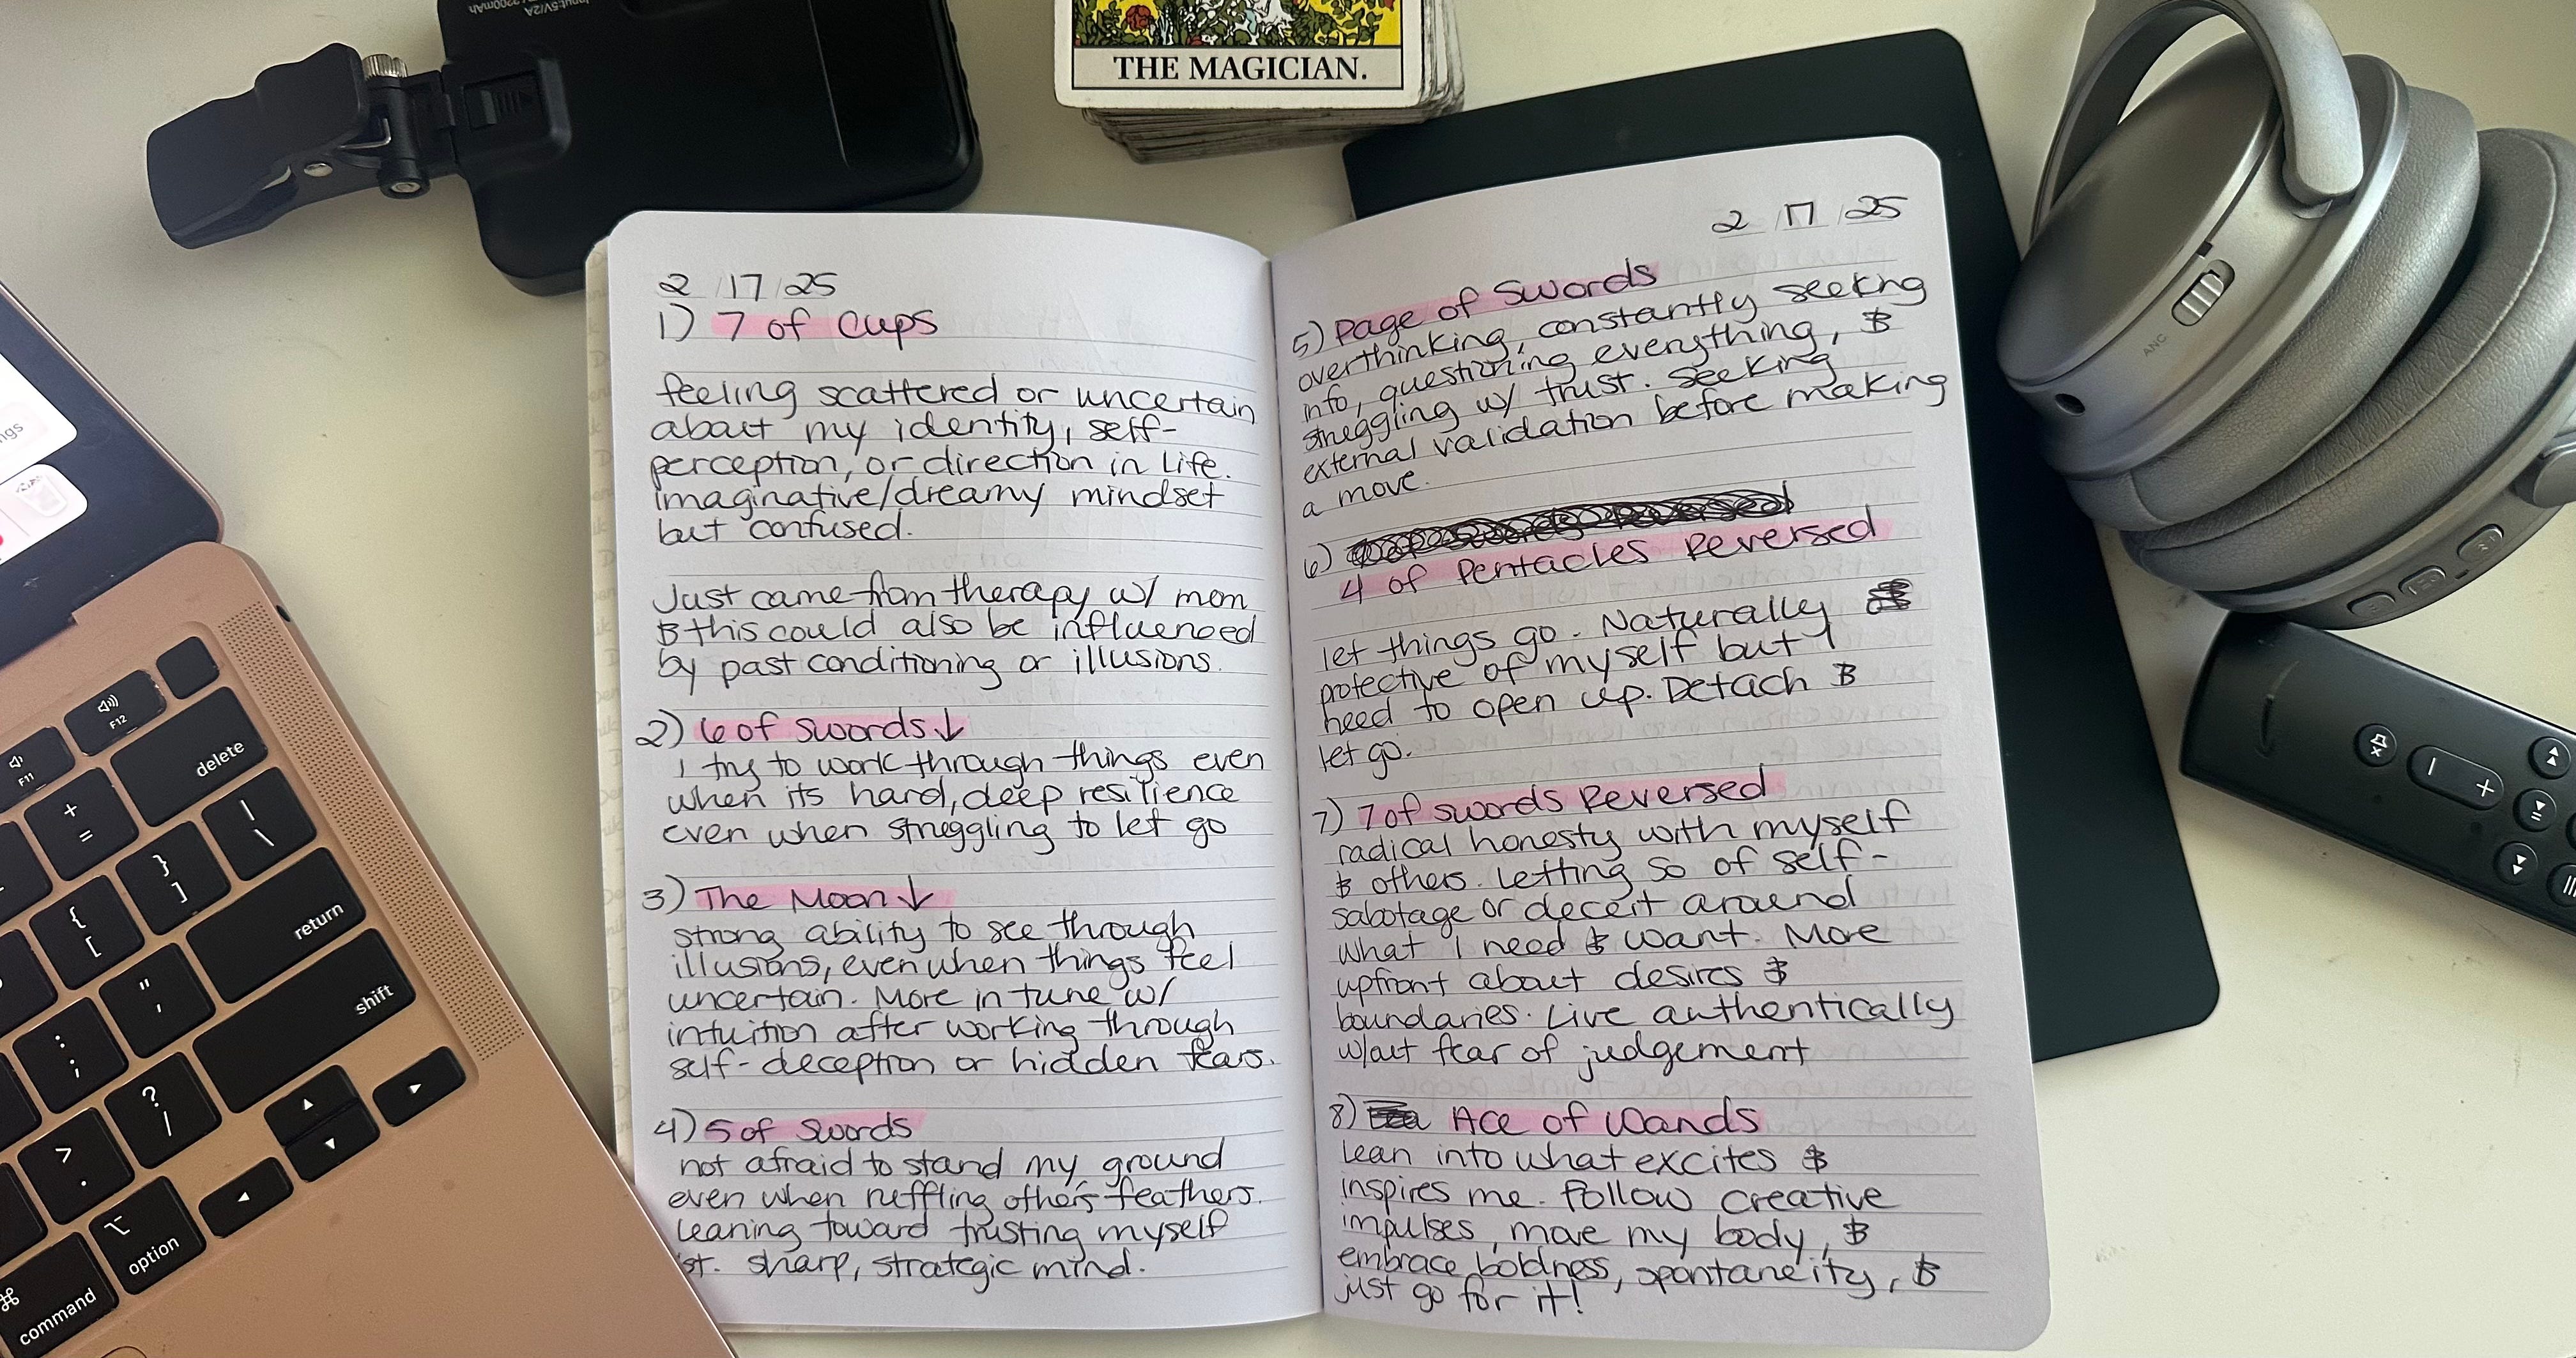 Input:5V/2A
2200mAh
THE MAGICIAN.
2/17/25
1) 7 of Cups
feeling scattered or uncertain
about my identity, self-
perception, or direction in life.
imaginative/dreamy mindset
but confused.
Just came from therapy w/ mom
& this could also be influenced
by past conditioning or illusions.
2) 6 of swords↓
I try to work through things even
when its hard, deep resilience
even when struggling to let go
3) The Moon↓
strong ability to see through
illusions, even when things feel
uncertain. More in tune w/
intuition after working through
self-deception or hidden fears.
4) 5 of Swords
not afraid to stand my ground
even when ruffling others feathers.
Leaning toward trusting myself
st. sharp, strategic mind.
2/17/25
5) Page of Swords
overthinking, constantly seeking
info, questioning everything, &
struggling w/ trust. Seeking
external validation before making
a move.
6)
4 of Pentacles Reversed
let things go. Naturally
protective of myself but I
need to open up. Detach &
let go.
7) 7 of swords Reversed
radical honesty with myself
& others. Letting so of self-
sabotage or deceit around
what I need & want. More
upfront about desires &
boundaries. Live authentically
w/out fear of judgement
8) Ace of Wands
Lean into what excites &
inspires me. Follow creative
impulses, move my body, &
embrace boldness, spontaneity, &
just go for it!
ngs
F11
F12
delete
+
=
|
\
{
[
}
]
return
:
;
"
'
shift
>
.
?
/
option
command
ANC